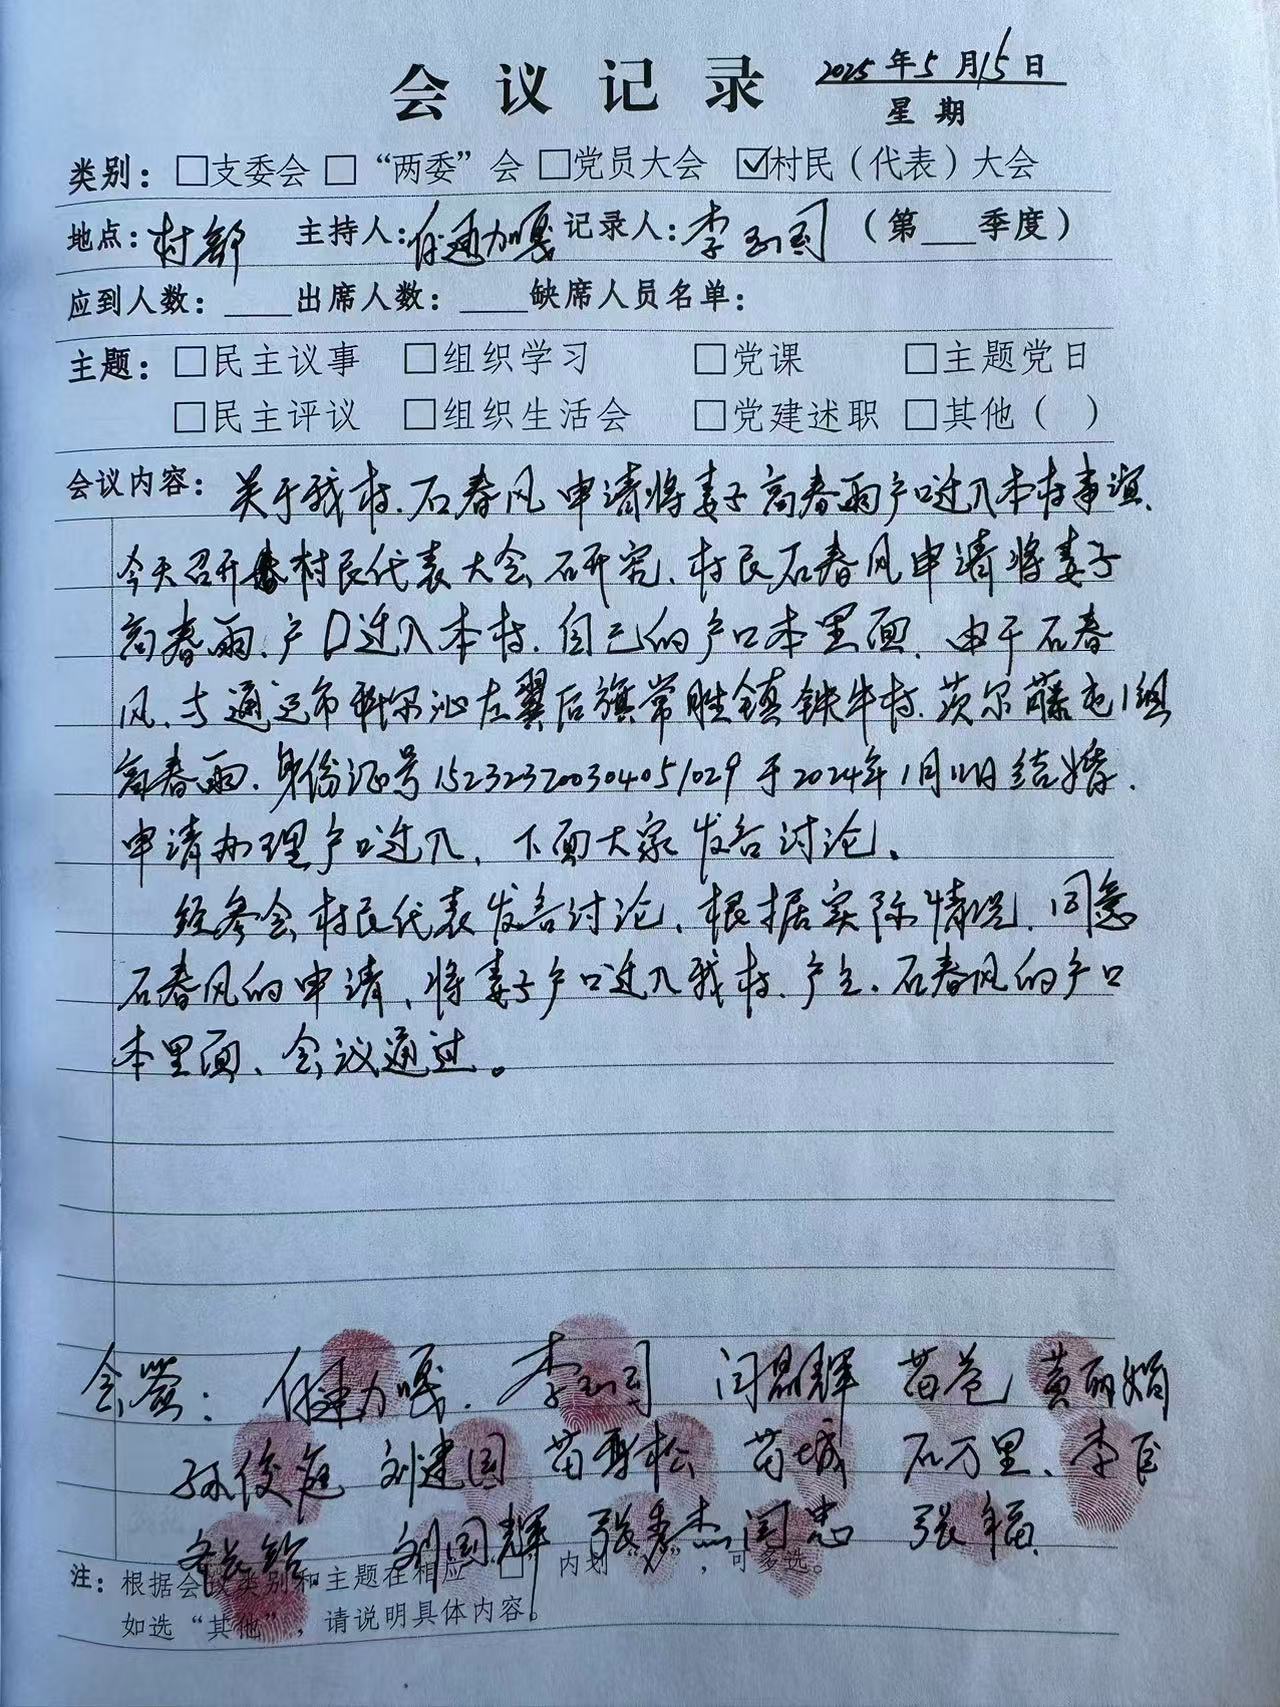 会议记录
2025年5月15日
星期
类别：□支委会 □“两委”会 □党员大会 ☑村民（代表）大会
地点：村部 主持人：任建加嘎 记录人：李玉国 （第___季度）
应到人数：____出席人数：____缺席人员名单：
主题：□民主议事 □组织学习 □党课 □主题党日
□民主评议 □组织生活会 □党建述职 □其他（ ）
会议内容：关于我村、石春风申请将妻子高春雨户口迁入本村事谊、
今天召开村民代表大会研究、村民石春风申请将妻子
高春雨、户口迁入本村、自己的户口本里面、由于石春
风、与通辽市科尔沁左翼后旗常胜镇铁牛村、茨尔藤屯1组
高春雨、身份证号152323200304051029于2024年1月11日结婚、
申请办理户口迁入、下面大家发言讨论。
经参会村民代表发言讨论、根据实际情况、同意
石春风的申请、将妻子户口迁入我村、户主、石春风的户口
本里面、会议通过。
会签：任建加嘎、李玉国 闫晶辉 苗苍 黄丽娟
孙俊庭 刘建国 苗青松 苗城 石万里、李臣
刘国辉 张秀杰 闫忠 张福
注：根据会议类别和主题在相应“□”内划“√”，可多选。
如选“其他”，请说明具体内容。